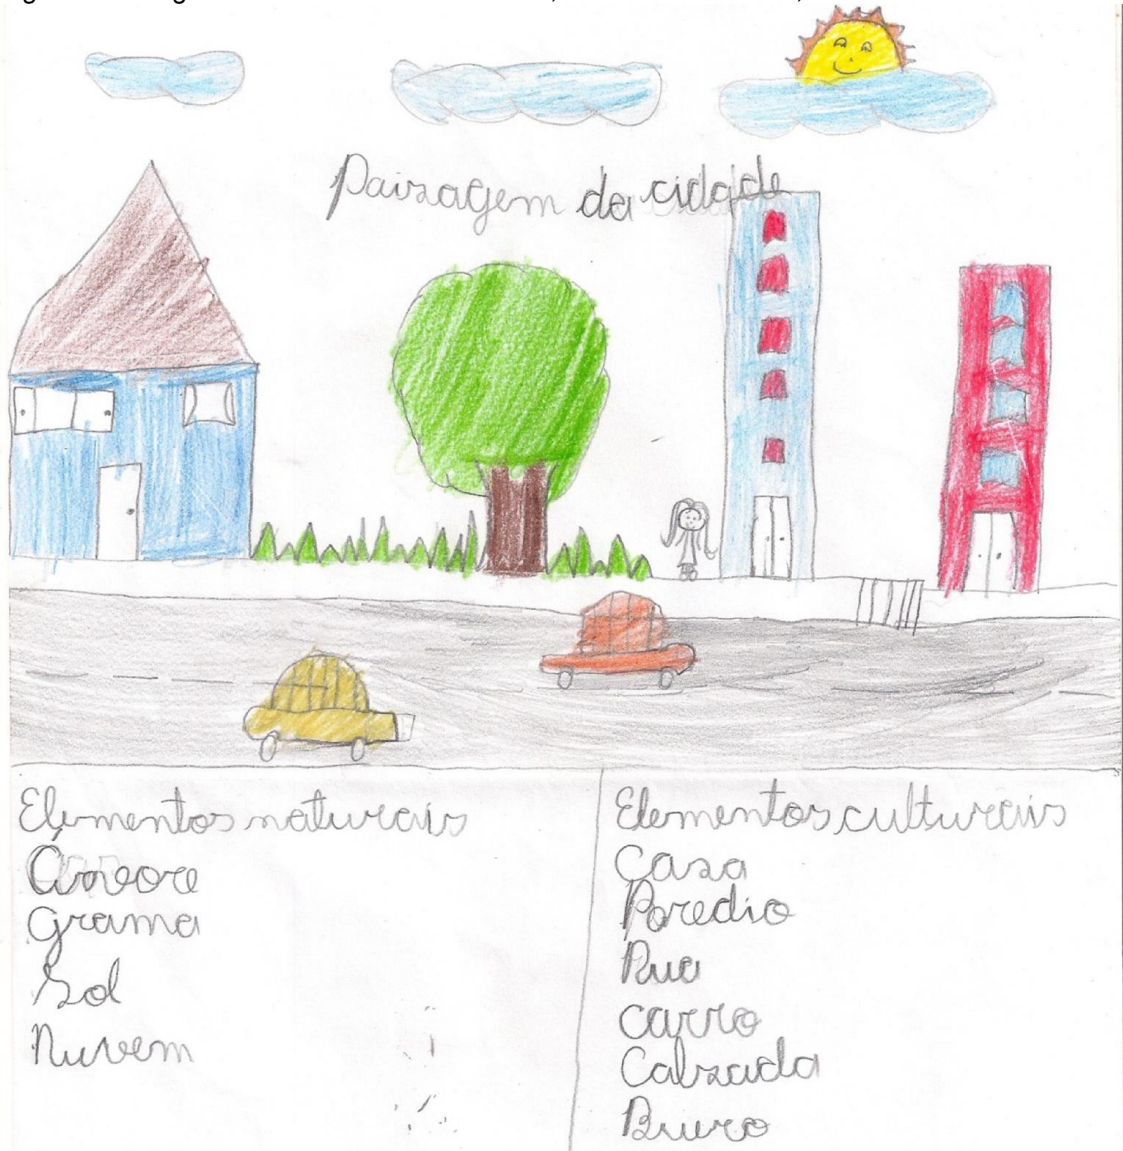 Paisagem da cidade
Elementos naturais
Árvore
Grama
Sol
Nuvem
Elementos culturais
Casa
Predio
Rua
carro
Calsada